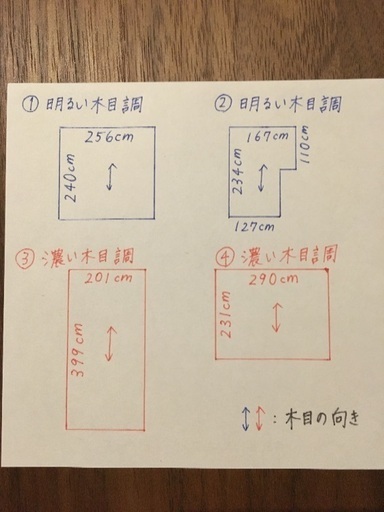 ① 明るい木目調
256cm
240cm
② 明るい木目調
167cm
110cm
234cm
127cm
③ 濃い木目調
201cm
399cm
④ 濃い木目調
290cm
231cm
↕↕:木目の向き